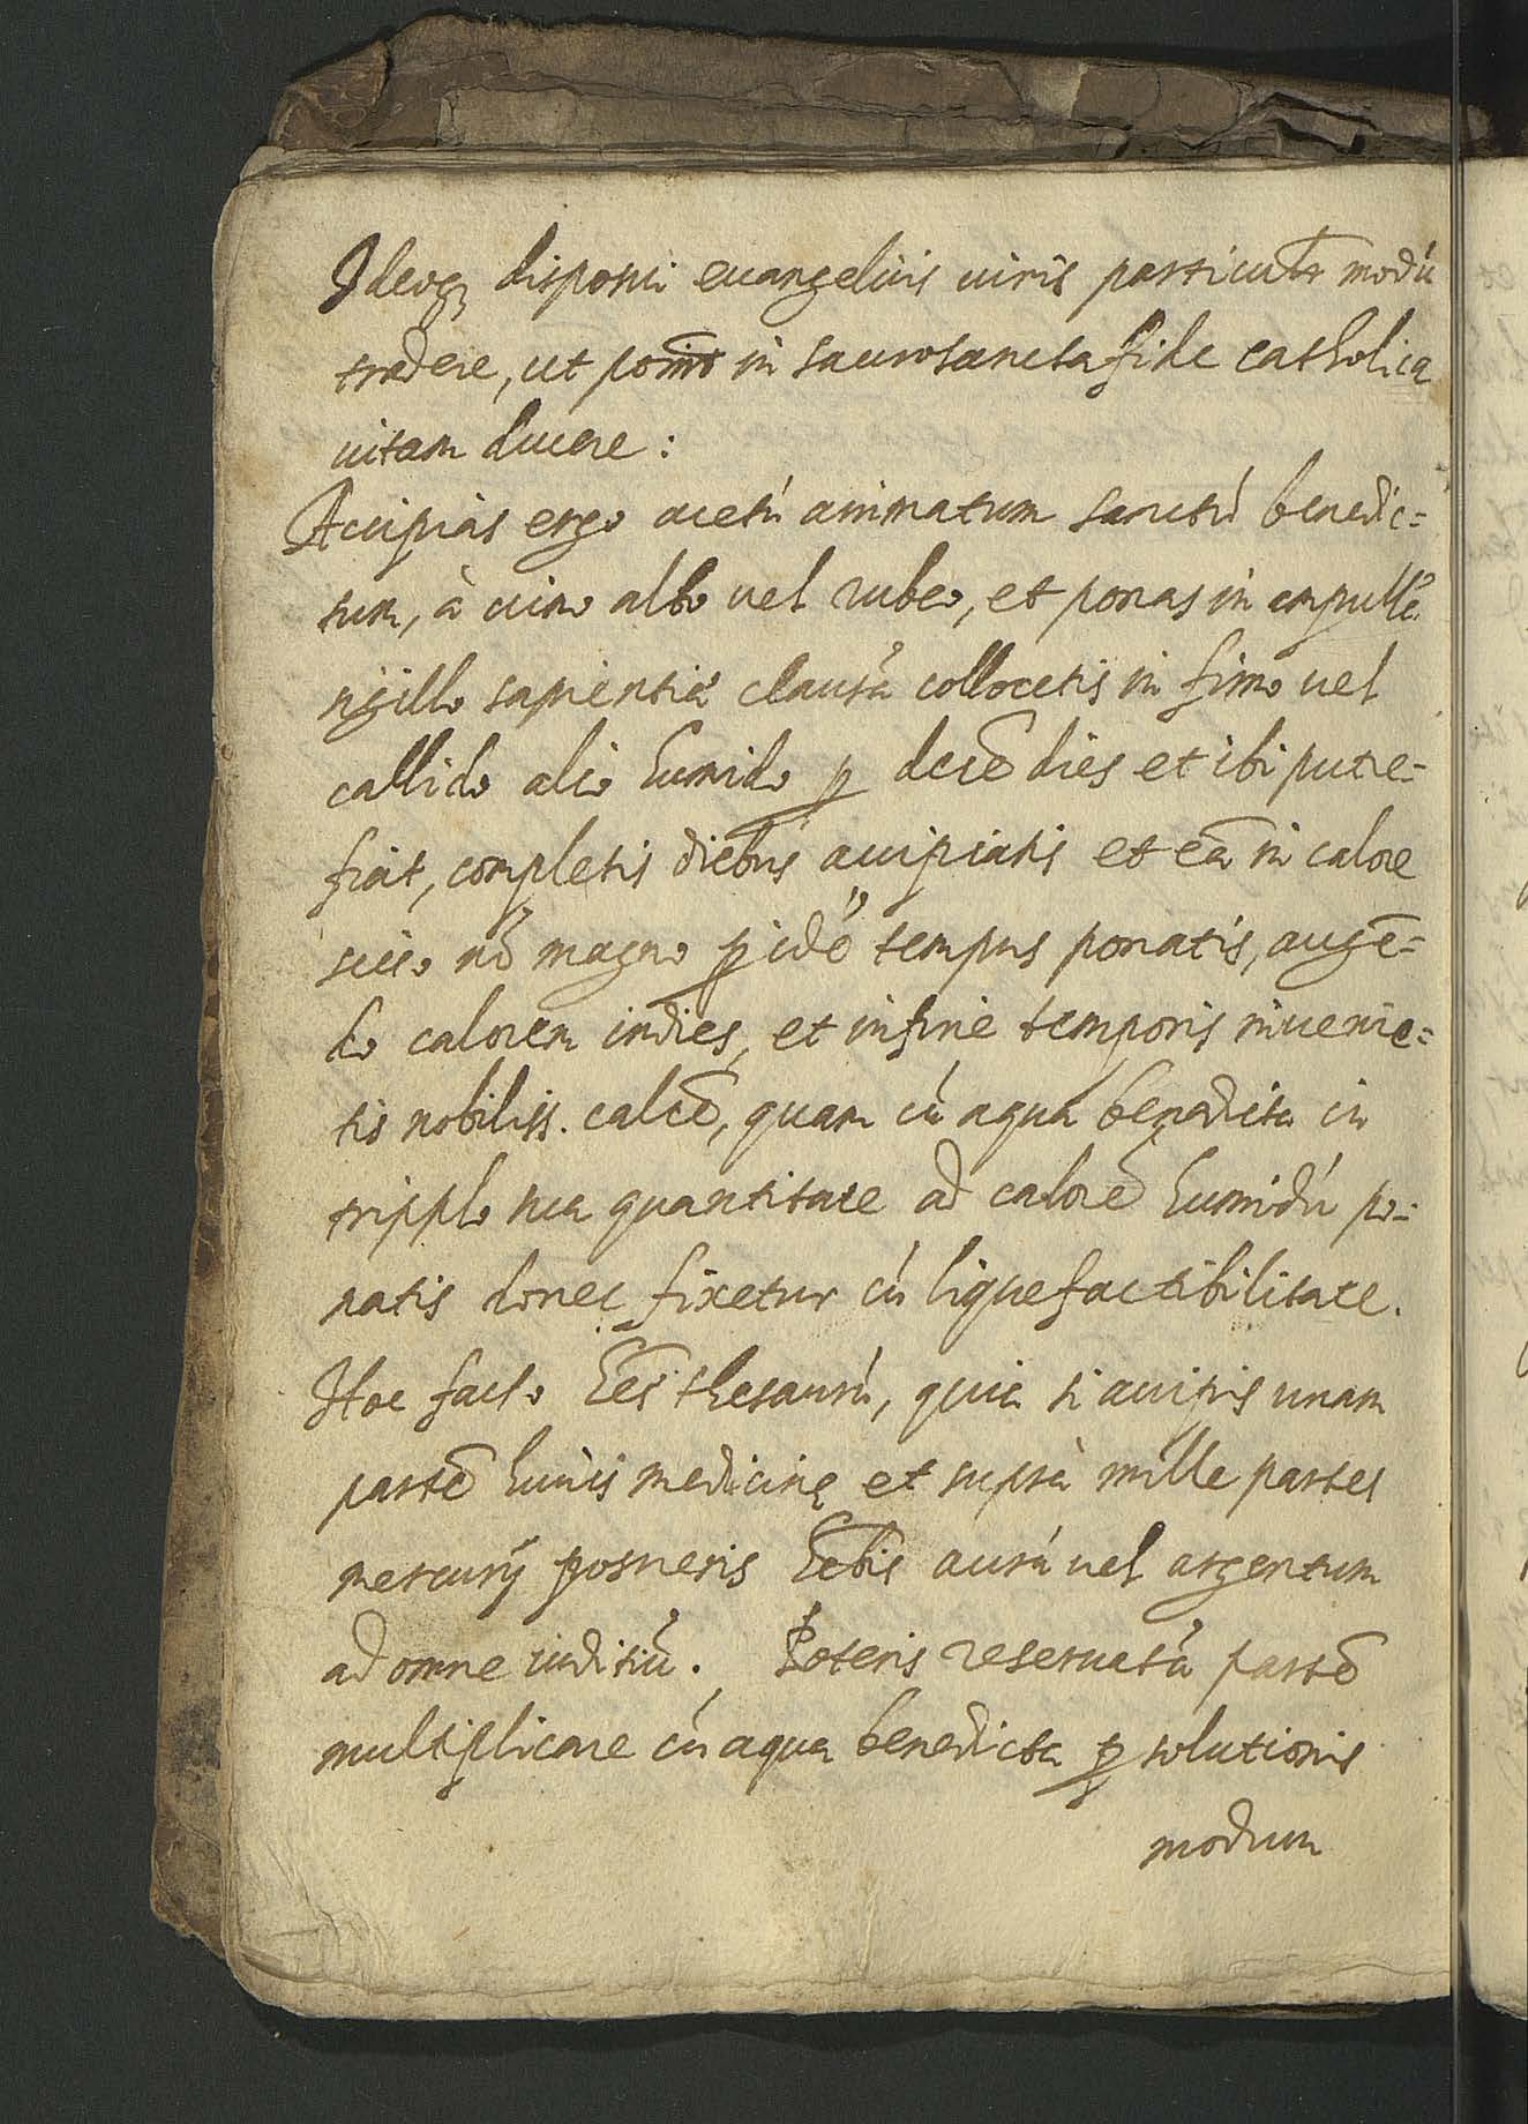 Ideoq; disposui euangelicis uiris particulr modú
tradere, ut poss̄nt in sacrosancta fide catholica
uitam ducere:
Accipias ergo acetú animatum sanctú benedic=
tum, à uino albo uel rubeo, et ponas in ampullá
sigillo sapientiá clausá collocetis in fimo uel
callido alio humido p decē dies et ibi putre=
fiat, completis diebus accipiatis et eā in calore
sicco nō magno p idē tempus ponatis, augē=
do calorem indies, et in fine temporis inuenie=
tis nobiliss. calcē, quam cú aqua benedicta in
tripplo sua quantitate ad calorē humidú po=
natis donec fixetur cú liquefactibilitate.
Hoc facto hēs thesaurú, quia si accipis unam
partē huius medicinę et suprà mille partes
mercurij posueris hēbis aurú uel argentum
ad omne inditiú. Poteris reseruatá partē
multiplicare cú aqua benedicta p solutionis
modum